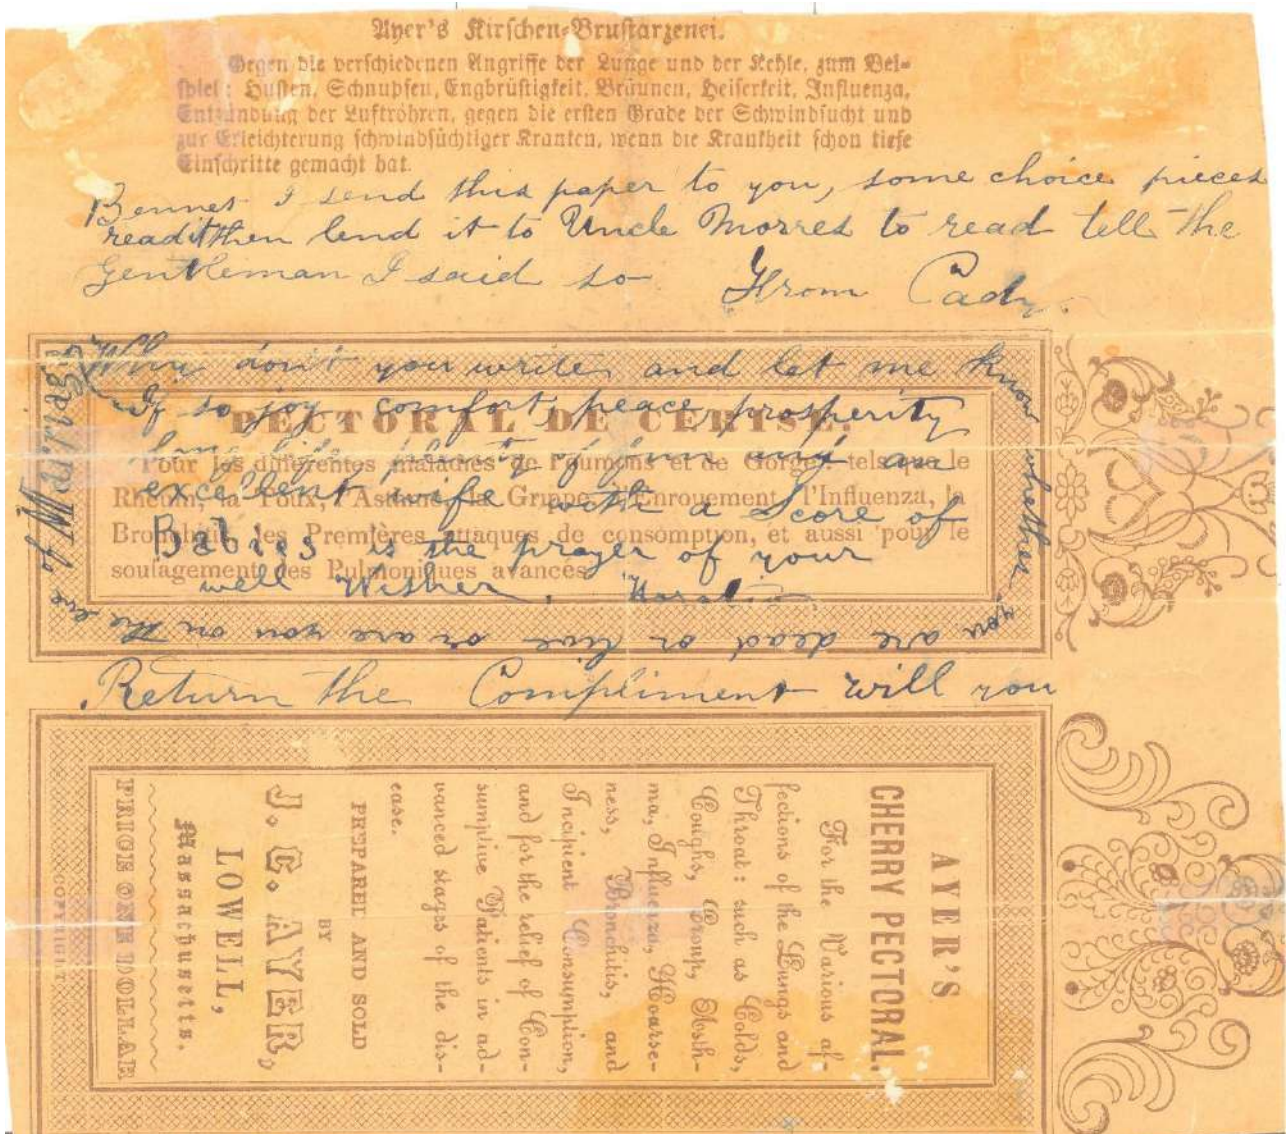 Ayer's Kirschen-Brustarzenei.
Gegen die verschiedenen Angriffe der Lunge und der Kehle, zum Bei-
spiel: Husten, Schnupfen, Engbrüstigkeit, Bräunen, Heiserkeit, Influenza,
Entzündung der Luftröhren, gegen die ersten Grade der Schwindsucht und
zur Erleichterung schwindsüchtiger Kranken, wenn die Krankheit schon tiefe
Einschritte gemacht hat.
Bennet I send this paper to you, some choice pieces
read it then lend it to Uncle Morres to read tell the
Gentleman I said so From Cady.
Why don't you write and let me know whether you are dead or live or are you on the eve of Marriage
If so joy comfort, peace, prosperity
long life plenty of fun and an
excellent wife with a Score of
Babies is the prayer of your
well Wisher. Horatio
PECTORAL DE CERISE.
Pour les différentes maladies de Poumons et de Gorge, tels que le
Rheum, la Toux, l'Asthme, la Grippe, l'Enrouement, l'Influenza, la
Bronchite, les Premières attaques de consomption, et aussi pour le
soulagement des Pulmoniques avancés.
Return the Compliment will you
AYER'S
CHERRY PECTORAL.
For the Various af-
fections of the Lungs and
Throat: such as Colds,
Coughs, Croup, Asth-
ma, Influenza, Hoarse-
ness, Bronchitis, and
Incipient Consumption,
and for the relief of Con-
sumptive Patients in ad-
vanced stages of the dis-
ease.
PREPARED AND SOLD
BY
J. C. AYER,
LOWELL,
Massachusetts.
PRICE ONE DOLLAR
COPYRIGHT